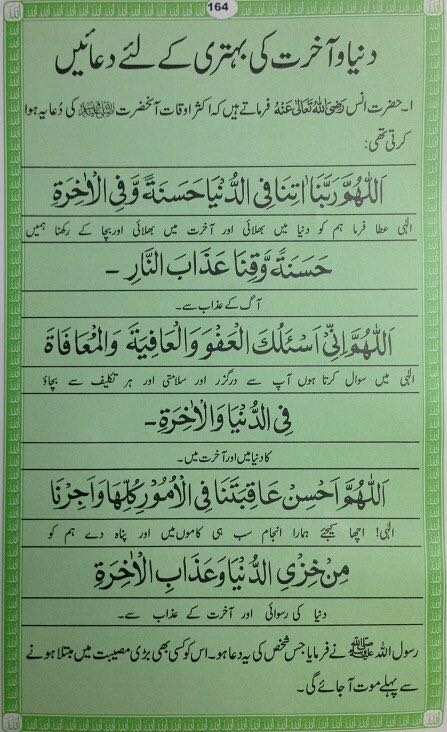 164
دنیا و آخرت کی بہتری کے لئے دعائیں
۱۔ حضرت انس رضی اللہ تعالیٰ عنہ فرماتے ہیں کہ اکثر اوقات آنحضرت ﷺ کی دُعا یہ ہوا
کرتی تھی:
اَللّٰهُمَّ رَبَّنَا اٰتِنَا فِی الدُّنْیَا حَسَنَةً وَّفِی الْاٰخِرَةِ
الٰہی عطا فرما ہم کو دنیا میں بھلائی اور آخرت میں بھلائی اور بچا کے رکھنا ہمیں
حَسَنَةً وَّقِنَا عَذَابَ النَّارِ ۔
آگ کے عذاب سے۔
اَللّٰهُمَّ اِنِّیْ اَسْئَلُكَ الْعَفْوَ وَالْعَافِیَةَ وَالْمُعَافَاةَ
الٰہی میں سوال کرتا ہوں آپ سے درگزر اور سلامتی اور ہر تکلیف سے بچاؤ
فِی الدُّنْیَا وَالْاٰخِرَةِ ۔
کا دنیا میں اور آخرت میں۔
اَللّٰهُمَّ اَحْسِنْ عَاقِبَتَنَا فِی الْاُمُوْرِ كُلِّهَا وَاَجِرْنَا
الٰہی! اچھا کیجئے ہمارا انجام سب ہی کاموں میں اور پناہ دے ہم کو
مِنْ خِزْیِ الدُّنْیَا وَعَذَابِ الْاٰخِرَةِ
دنیا کی رسوائی اور آخرت کے عذاب سے۔
رسول اللہ ﷺ نے فرمایا جس شخص کی یہ دعا ہو۔ اس کو کسی بھی بڑی مصیبت میں مبتلا ہونے
سے پہلے موت آ جائے گی۔